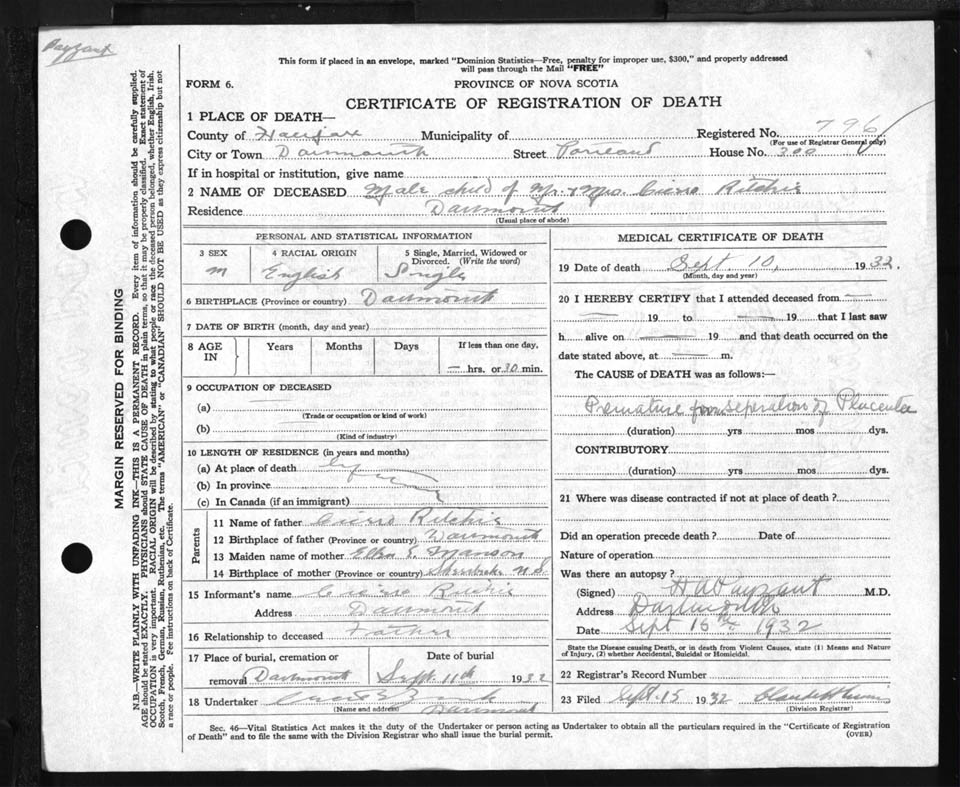 Payzant
This form if placed in an envelope, marked "Dominion Statistics—Free, penalty for improper use, $300," and properly addressed
will pass through the Mail "FREE"
FORM 6.
PROVINCE OF NOVA SCOTIA
CERTIFICATE OF REGISTRATION OF DEATH
1 PLACE OF DEATH—
County of Halifax Municipality of Registered No. 796
(For use of Registrar General only)
City or Town Dartmouth Street Portland House No. 300
If in hospital or institution, give name
2 NAME OF DECEASED Male child of Mr. & Mrs. Ritchie
Residence Dartmouth
(Usual place of abode)
PERSONAL AND STATISTICAL INFORMATION
3 SEX 4 RACIAL ORIGIN 5 Single, Married, Widowed or
Divorced. (Write the word)
M English Single
6 BIRTHPLACE (Province or country) Dartmouth
7 DATE OF BIRTH (month, day and year)
8 AGE IN Years Months Days If less than one day,
— hrs. or 30 min.
9 OCCUPATION OF DECEASED
(a)
(Trade or occupation or kind of work)
(b)
(Kind of industry)
10 LENGTH OF RESIDENCE (in years and months)
(a) At place of death
(b) In province
(c) In Canada (if an immigrant)
Parents
11 Name of father Ritchie
12 Birthplace of father (Province or country) Dartmouth
13 Maiden name of mother E. Manson
14 Birthplace of mother (Province or country) Sherbrooke N.S.
15 Informant's name Ritchie
Address Dartmouth
16 Relationship to deceased Father
17 Place of burial, cremation or Date of burial
removal Dartmouth Sept. 11th 1932
18 Undertaker
(Name and address) Dartmouth
MEDICAL CERTIFICATE OF DEATH
19 Date of death Sept. 10, 1932.
(Month, day and year)
20 I HEREBY CERTIFY that I attended deceased from —
— 19 to — 19 that I last saw
h alive on — 19 and that death occurred on the
date stated above, at — m.
The CAUSE of DEATH was as follows:—
Premature from seperation of Placenta
(duration) yrs mos dys.
CONTRIBUTORY
(duration) yrs mos dys.
21 Where was disease contracted if not at place of death?
Did an operation precede death? Date of
Nature of operation
Was there an autopsy?
(Signed) H A Payzant M.D.
Address Dartmouth
Date Sept 15th 1932
State the Disease causing Death, or in death from Violent Causes, state (1) Means and Nature
of Injury, (2) whether Accidental, Suicidal or Homicidal.
22 Registrar's Record Number
23 Filed Sept. 15 1932
(Division Registrar)
Sec. 46—Vital Statistics Act makes it the duty of the Undertaker or person acting as Undertaker to obtain all the particulars required in the "Certificate of Registration
of Death" and to file the same with the Division Registrar who shall issue the burial permit. (OVER)
MARGIN RESERVED FOR BINDING
N.B.—WRITE PLAINLY WITH UNFADING INK—THIS IS A PERMANENT RECORD. Every item of information should be carefully supplied.
AGE should be stated EXACTLY. PHYSICIANS should STATE CAUSE OF DEATH in plain terms, so that it may be properly classified. Exact statement of
OCCUPATION is very important. RACIAL ORIGIN will be described by stating to what people or race the deceased person belonged, whether English, Irish,
Scotch, French, German, Russian, Ruthenian, etc. The terms "AMERICAN" or "CANADIAN" SHOULD NOT BE USED as they express citizenship but not
a race or people. See instructions on back of Certificate.